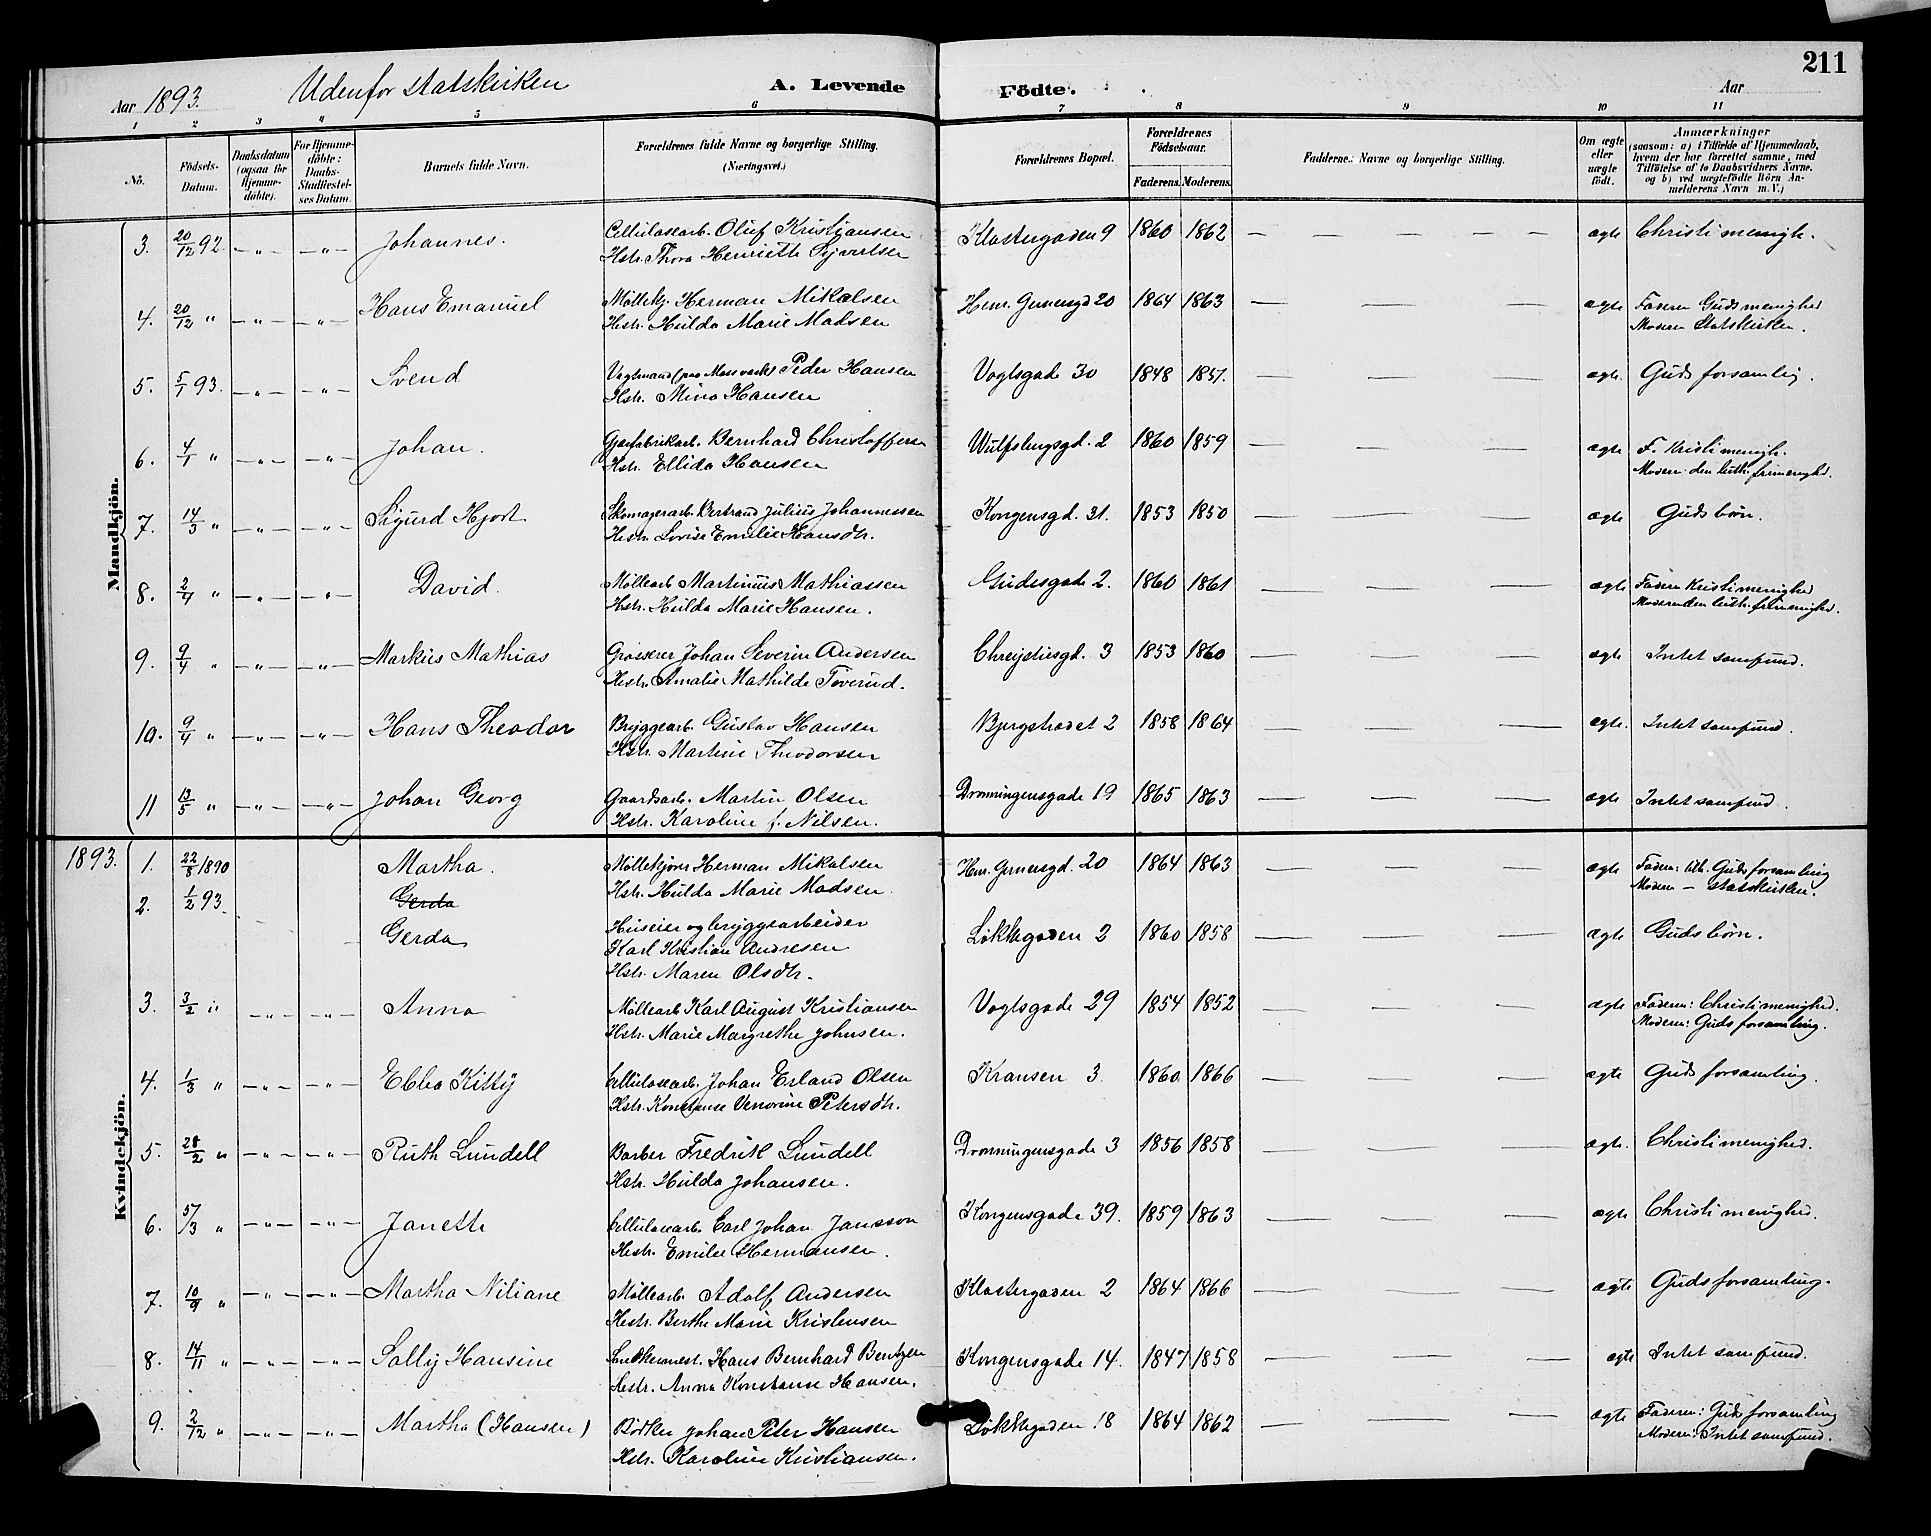 211
Aar 1893. Udenfor statskirken A. Levende Födte. Aar
1 2 3 4 5 6 7 8 9 10 11
No. Födsels-Datum. Daabsdatum (ogsaa for Hjemme-döbte). For Hjemme-döbte: Daabs-Stadfæstel-ses Datum. Barnets fulde Navn. Forældrenes fulde Navne og borgerlige Stilling. (Næringsvei.) Forældrenes Bopæl. Forældrenes Födselsaar. Faderens. Moderens. Faddernes Navne og borgerlige Stilling. Om ægte eller uægte födt. Anmærkninger (saasom: a) i Tilfælde af Hjemmedaab, hvem der har forrettet samme, med Tilföielse af to Daabsvidners Navne. og b) ved uægtefödte Börn An-melderens Navn m. V.)
Mandkjön.
3. 20/12 92. — „ — — „ — Johannes. Cellulosearb. Oluf Kristiansen Klostergaden 9 1860 1862 — — — — — ægte Christi menigh.
Hstr. Thora Henriette Syvertsen
4. 20/12 „ — „ — — „ — Hans Emanuel Møllekj. Herman Mikalsen Henr. Gernersgd 20 1864 1863 — — — ægte Faderen Guds menighed
Hstr. Hulda Marie Madsen Moderen Statskirken.
5. 5/1 93. — „ — — „ — Svend Vagtmand (paa Mossværk) Peder Hansen Vogtsgade 30 1848 1851. — — — ægte. Guds forsamlig.
Hstr. Mina Hansen
6. 4/1 „ — „ — — „ — Johan. Gjærfabrikarb. Bernhard Christoffersen Wulfsbergsgd. 2 1860 1859 — — — ægte F. Kristi menigh.
Hstr. Ellida Hansen Moderen den luth. frimenighd.
7. 14/3 „ — „ — — „ — Sigurd Hjort Skomagerarb. Bertrand Julius Johannessen Kongensgd. 31. 1853 1850 — — — ægte Guds børn.
Hstr. Lovise Emilie Hansdtr.
8. 2/4 „ — „ — — „ — David. Møllearb Martinius Mathiassen Gudesgade 2. 1860 1861 — — — ægte Faderen Kristi menighed
Hstr. Hulda Marie Hansen. Moderen den luth. frimenighed.
9. 9/4 „ — „ — — „ — Markus Mathias Grosserer Johan Severin Andersen Chrystiesgd. 3 1853 1860 — — — ægte Intet samfund.
Hstr. Amalie Mathilde Toverud.
10. 9/4 „ — „ — — „ — Hans Theodor Bryggearb. Gustav Hansen Bjergstrædet 2 1858 1864 — — — ægte. Intet samfund.
Hstr. Martine Theodorsen
11 13/5 „ — „ — — „ — Johan Georg Gaardsarb. Martin Olsen Dronningensgade 19 1865 1863 — — — ægte Intet samfund.
Hstr. Karoline f. Nilsen.
Kvindekjön.
1893. 1. 22/8 1890 Martha. Møllekjører Herman Mikalsen Henr. Gernersgd. 20 1864 1863 — — — ægte Faderen: tilh. Guds forsamling
Hstr. Hulda Marie Madsen. Moderen — statskirken.
2. 1/2 93. Gerda
Gerda Huseier og bryggearbeider Løkkegaden 2 1860 1858 — — — ægte Guds børn.
Karl Kristian Andresen
Hstr. Maren Olsdtr.
3. 3/2 „ — „ — — „ — Anna Møllearb Karl August Kristiansen Vogtsgade 29 1854 1852 — — — ægte Faderen: Christi menighed.
Hstr. Marie Margrethe Johnsen. Moderen: Guds forsamling.
4. 1/3 „ — „ — — „ — Ebba Kitty Cellulosearb. Johan Erland Olsen Kransen 3 1860 1866 — — — ægte Guds forsamling.
Hstr. Konstanse Petersdtr.
5. 28/2 „ — „ — — „ — Ruth Lundell Barber Fredrik Lundell Dronningensgade 3 1856 1858 — — — ægte. Christi menighed.
Hstr. Hulda Johansen.
6. /3 „ — „ — — „ — Janette Cellulosearb. Carl Johan Jansson Kongensgade 39. 1859 1863 — — — ægte Christi menighed.
Hstr. Emilie Hermansen.
7. 10/9 „ — „ — — „ — Martha Niliane Møllearb. Adolf Andersen Klostergaden 2 1864 1866 — — — ægte Guds forsamling.
Hstr. Berthe Marie Kristensen
8. 14/11 „ — „ — — „ — Sally Hansine Hans Bernhard Bentzen Kongensgade 14. 1847 1858 — — — ægte Intet samfund.
Hstr. Anna Konstanse Hansen.
9. 2/12 „ — „ — — „ — Martha (Hansen) Bødker Johan Peter Hansen Løkkegaden 18 1864 1862 — — ægte Faderen: Guds forsamling
Hstr. Karoline Kristiansen. Moderen: Intet samfund.